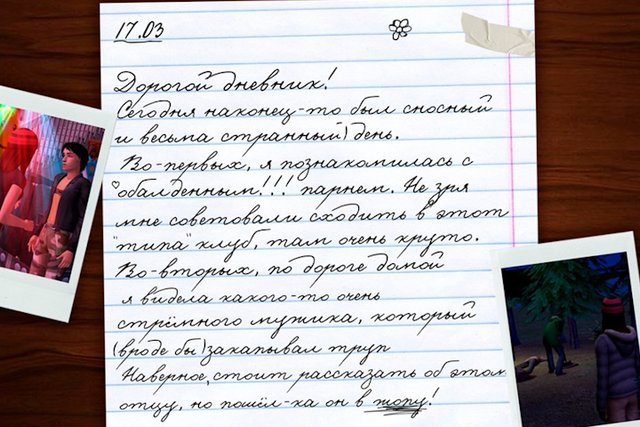 17.03
Дорогой дневник!
Сегодня наконец-то был сносный
и весьма странный) день.
Во-первых, я познакомилась с
обалденным!!! парнем. Не зря
мне советовали сходить в этот
"типа" клуб, там очень круто.
Во-вторых, по дороге домой
я видела какого-то очень
стрёмного мужика, который
(вроде бы) закапывал труп
Наверное, стоит рассказать об этом
отцу, но пошёл-ка он в жопу!